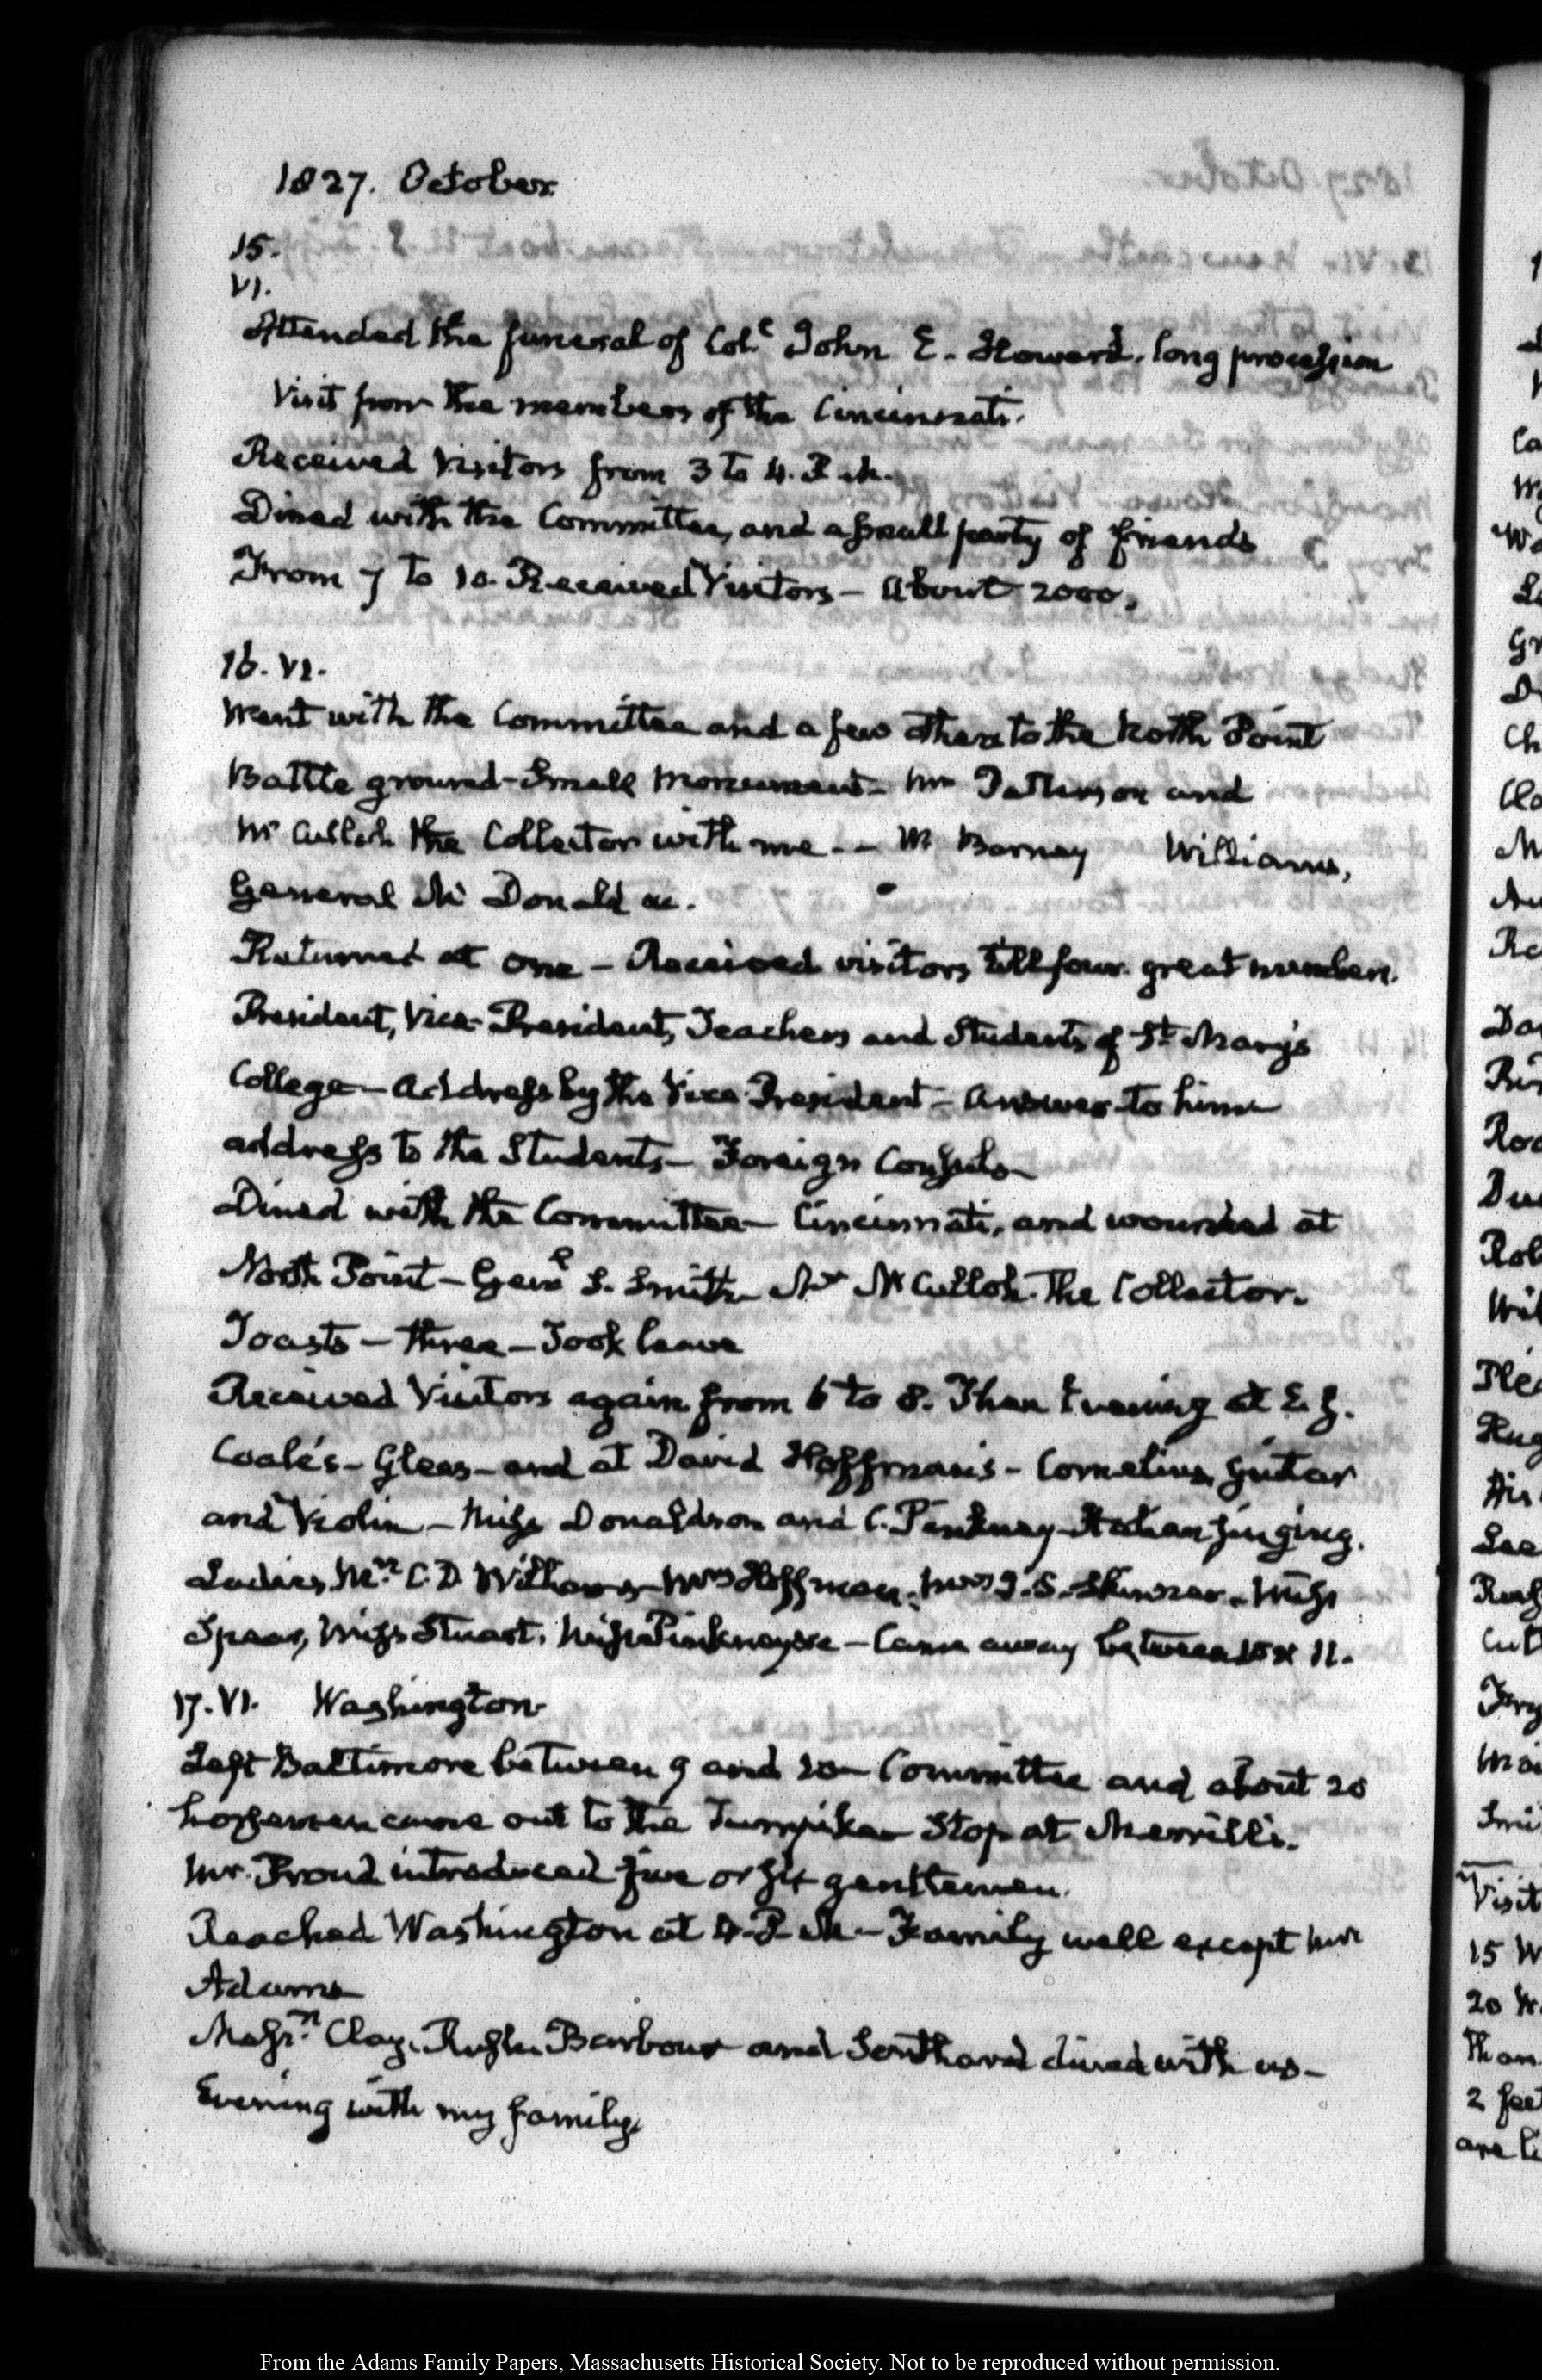 1827. October
15.
VI.
Attended the funeral of Col.l John E. Howard, long procession
Visit from the members of the Cincinnati.
Received Visitors from 3 to 4. P.M.
Dined with the Committee, and a small party of friends
From 7 to 10. Received Visitors – About 2000.
16. VI.
Went with the Committee and a few others to the North Point
Battle ground – Small Monument – Mr Patterson and
Mr Culloh the Collector with me – – Mr Barney Williams,
General McDonald &c.
Returned at one – Received visitors till four. great numbers.
President, Vice-President, Teachers and Students of St. Mary's
College – Address by the Vice President – Answer to him
address to the Students – Foreign Consuls –
Dined with the Committee – Cincinnati, and wounded at
North Point – Genl S. Smith – Mr McCulloh The Collector.
Toasts – three – Took leave
Received Visitors again from 6 to 8. Then Evening at E. J.
Coale's – Glees – and at David Hoffman's – Cornelius, guitar
and Violin – Miss Donaldson and C. Pinkney Italian singing.
Ladies, Mrs C. D. Williams – Mrs Hoffman. Mrs J. S. Skinner – Miss
Spear, Miss Stuart. Miss Pinkney &c – Came away between 10 & 11.
17. VI. Washington
Left Baltimore between 9 and 10 – Committee and about 20
horsemen came out to the Turnpike – Stop at Merrill's.
Mr. Proud introduced five or six gentlemen.
Reached Washington at 4. P.M – Family well except Mrs
Adams
Messrs Clay, Rush, Barbour and Southard dined with us –
Evening with my family.
From the Adams Family Papers, Massachusetts Historical Society. Not to be reproduced without permission.